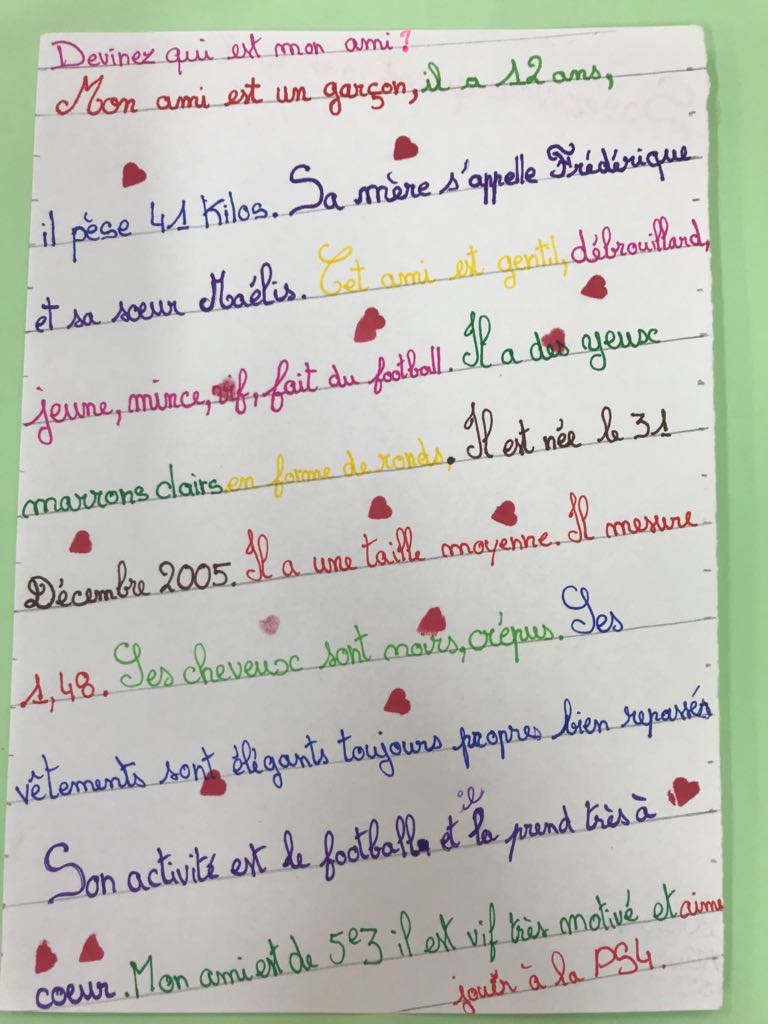 Devinez qui est mon ami ?
Mon ami est un garçon, il a 12 ans,
il pèse 41 Kilos. Sa mère s'appelle Frédérique
et sa sœur Maélis. Cet ami est gentil, débrouillard,
jeune, mince, vif, fait du football. Il a des yeux
marrons clairs en forme de ronds. Il est née le 31
Décembre 2005. Il a une taille moyenne. Il mesure
1,48. Ses cheveux sont noirs, crépus. Ses
vêtements sont élégants toujours propres bien repassés
Son activité est le football et il la prend très à
coeur. Mon ami est de 5e3 il est vif très motivé et aime
jouer à la PS4.